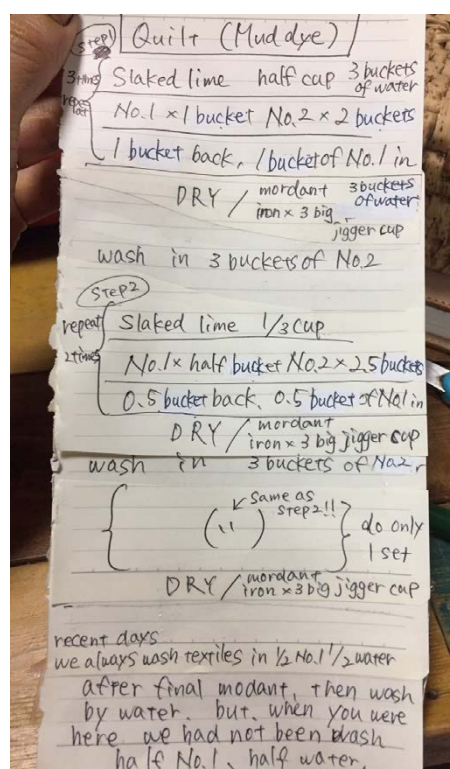 Step1
Quilt (Mud dye)
3 times
repeat
Slaked lime half cup 3 buckets of water
No.1 × 1 bucket No.2 × 2 buckets
1 bucket back, 1 bucket of No.1 in
DRY / mordant 3 buckets of water
iron × 3 big jigger cup
wash in 3 buckets of No.2
Step2
repeat
2 times
Slaked lime 1/3 cup
No.1 × half bucket No.2 × 2.5 buckets
0.5 bucket back, 0.5 bucket of No1 in
DRY / mordant
iron × 3 big jigger cup
wash in 3 buckets of No2,
( '' ) ↙ same as
step2!!
do only
1 set
DRY / mordant
iron × 3 big jigger cup
recent days
we always wash textiles in 1/2 No.1 1/2 water
after final modant, then wash
by water. but, when you were
here we had not been wash
half No.1, half water.